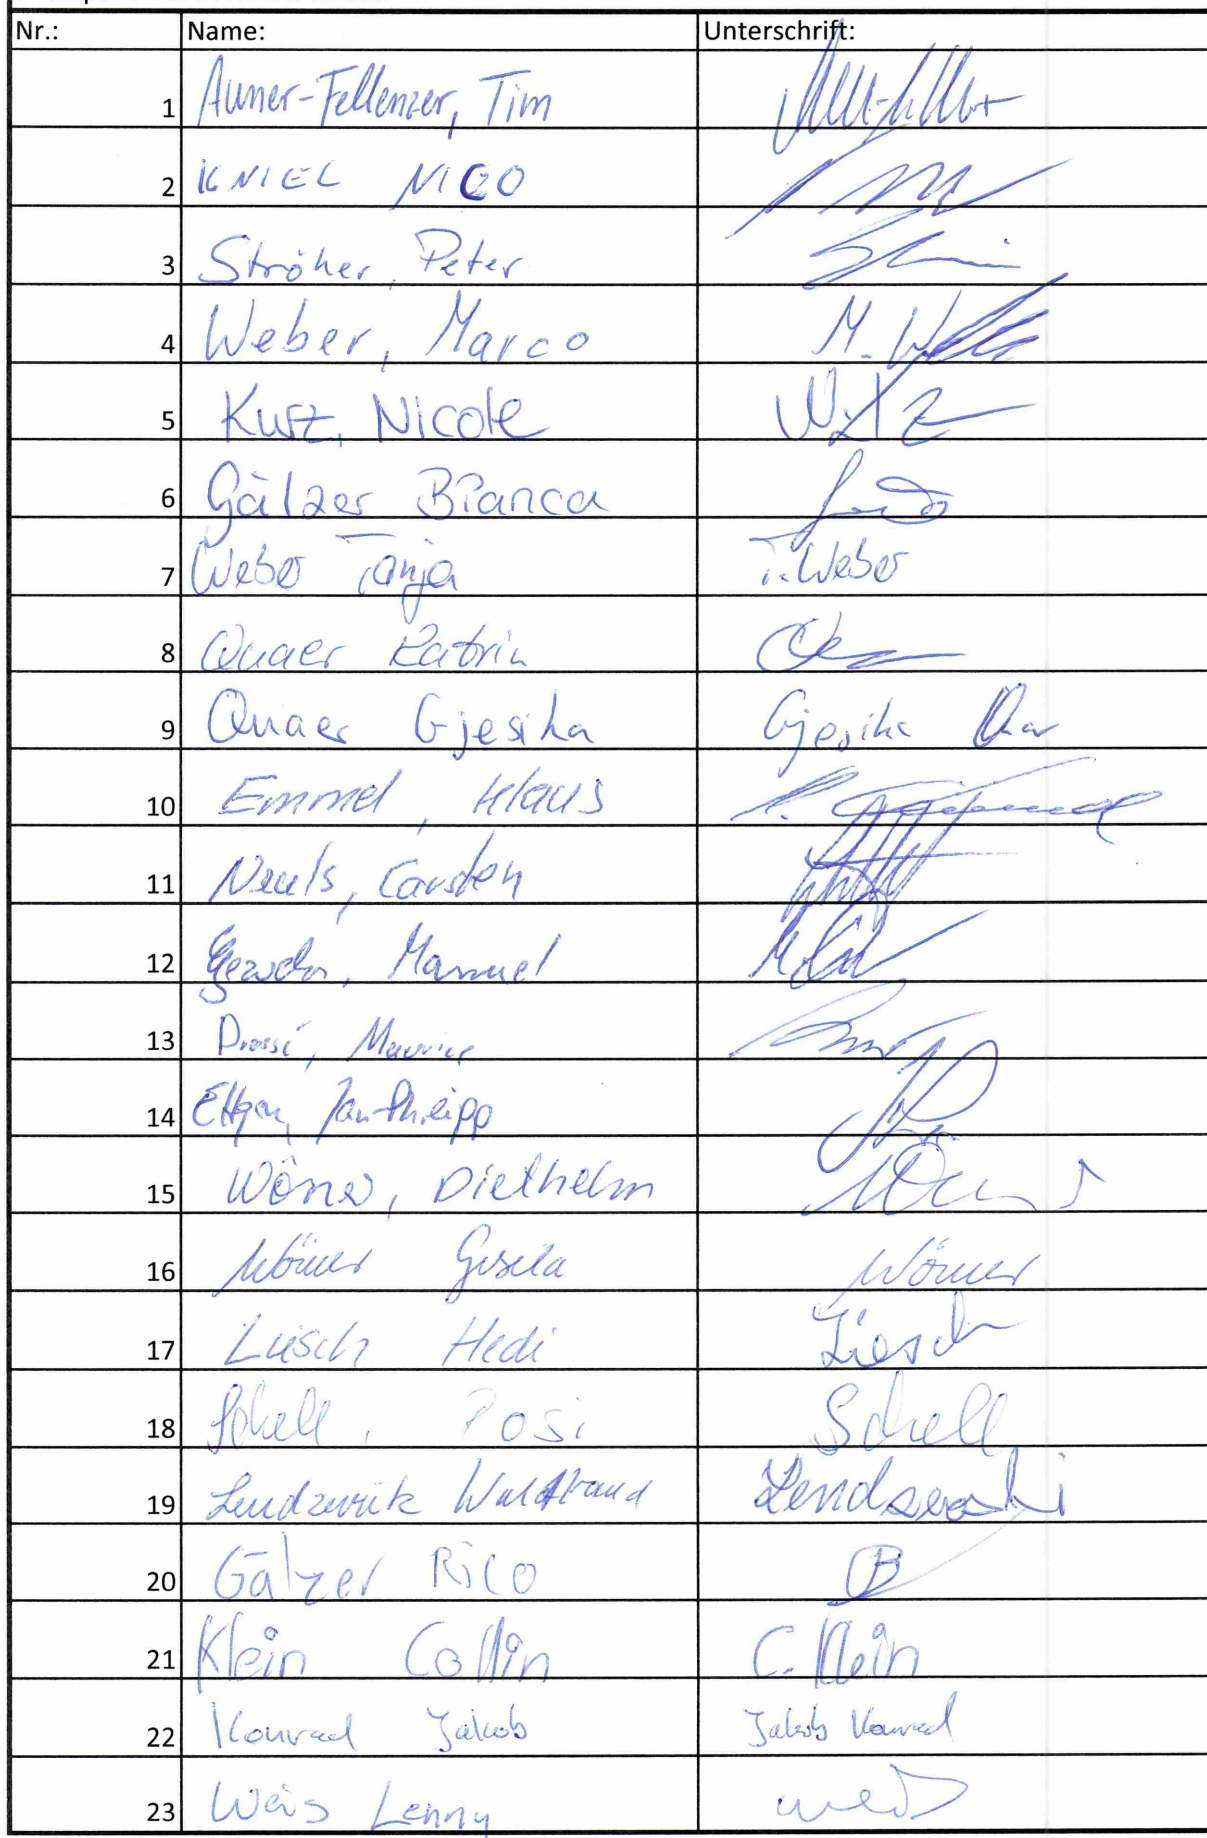 Nr.: Name: Unterschrift:
1 Auner-Fellenzer, Tim
2 KNIEL NICO
3 Ströher, Peter
4 Weber, Marco M. Weber
5 Kurz, Nicole
6 Gälzer Bianca
7 Weber Tanja T. Weber
8 Quaer Katrin
9 Quaer Gjesiha Gjesiha Quaer
10 Emmel, Klaus
11 Neuls, Carsten
12 Manuel
13 Maurice
14 Jan-Philipp
15 Wörner, Diethelm
16 Wörner Gisela Wörner
17 Liesch Hedi Liesch
18 Schell, Rosi Schell
19 Waldtraud
20 Gälzer Rico
21 Klein Collin C. Klein
22 Konrad Jakob Jakob Konrad
23 Weis Lenny